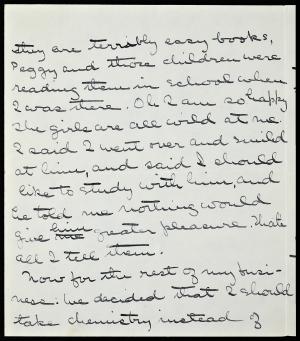 they are terribly easy books,
Peggy and those children were
reading them in school when
I was there. Oh I am so happy
The girls are all wild at me.
I said I went over and smiled
at him, and said I should
like to study with him, and
he told me nothing would
give me him greater pleasure. Thats
all I tell them.
Now for the rest of my busi-
ness: We decided that I should
take chemistry instead of